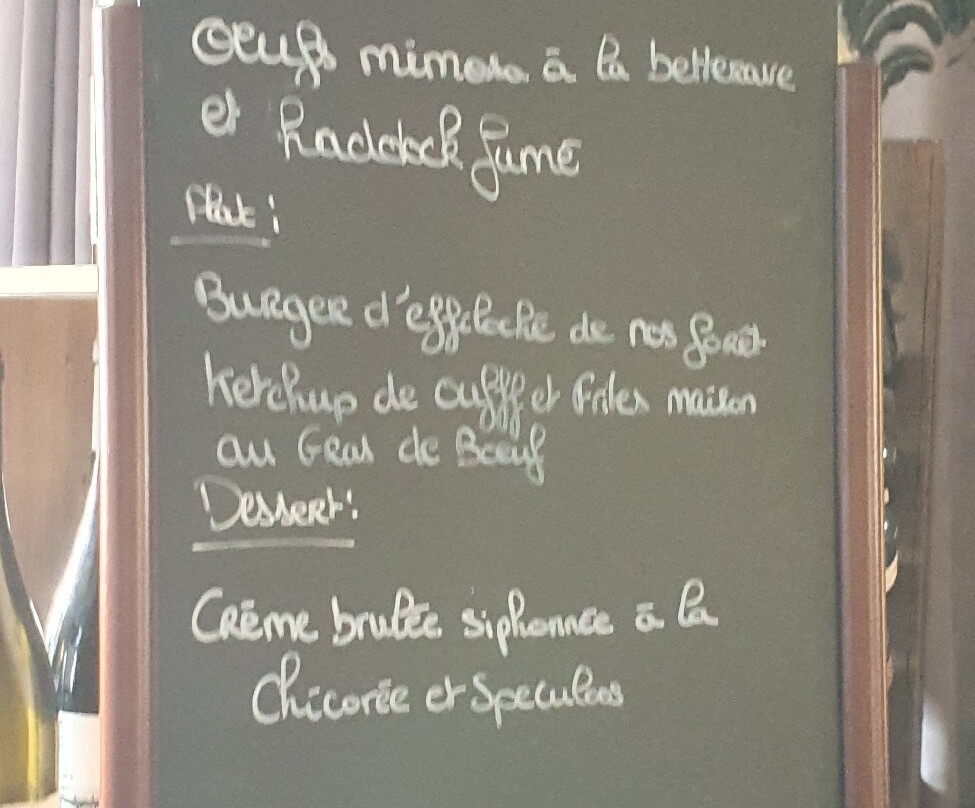 Oeufs mimosa à la betterave
et haddock fumé
Plat :
Burger d'effiloché de nos forêt
ketchup de et frites maison
au Gras de Boeuf
Dessert :
Crème brulée siphonnée à la
chicorée et Speculoos